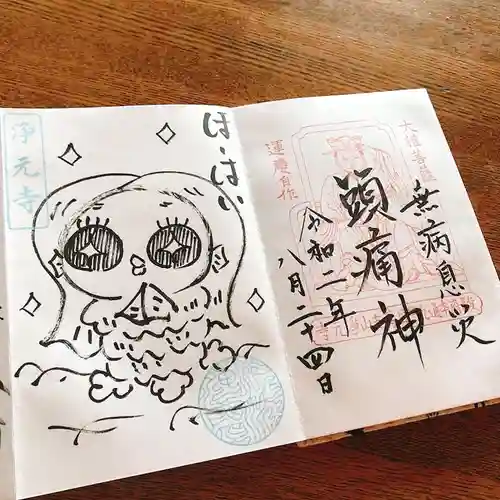 無病息災
頭痛神
令和二年
八月二十四日
運慶自作
は・はい
浄元寺